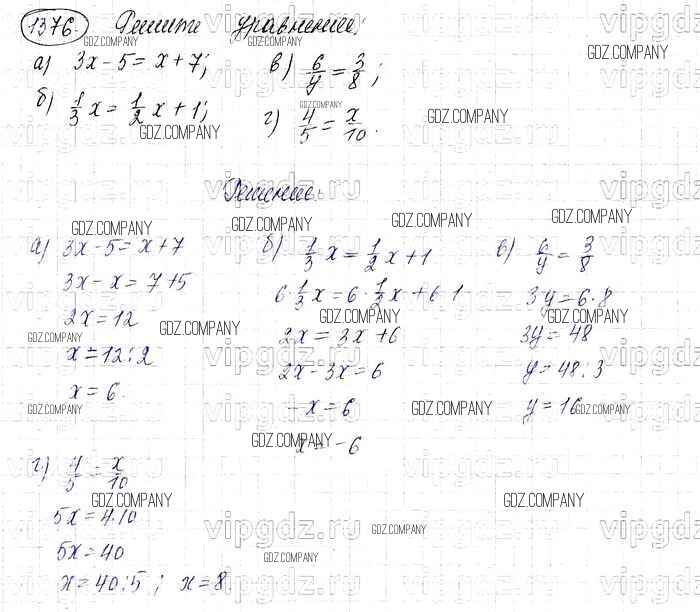 1376. Решите уравнение:
а) 3x - 5 = x + 7; в) 6/y = 3/8;
б) 1/3 x = 1/2 x + 1; г) 4/5 = x/10.
Решение.
а) 3x - 5 = x + 7
3x - x = 7 + 5
2x = 12
x = 12 : 2
x = 6.
б) 1/3 x = 1/2 x + 1
6 · 1/3 x = 6 · 1/2 x + 6 · 1
2x = 3x + 6
2x - 3x = 6
-x = 6
x = -6
в) 6/y = 3/8
3y = 6 · 8
3y = 48
y = 48 : 3
y = 16
г) 4/5 = x/10
5x = 4 · 10
5x = 40
x = 40 : 5 ; x = 8.
GDZ.COMPANY
vipgdz.ru